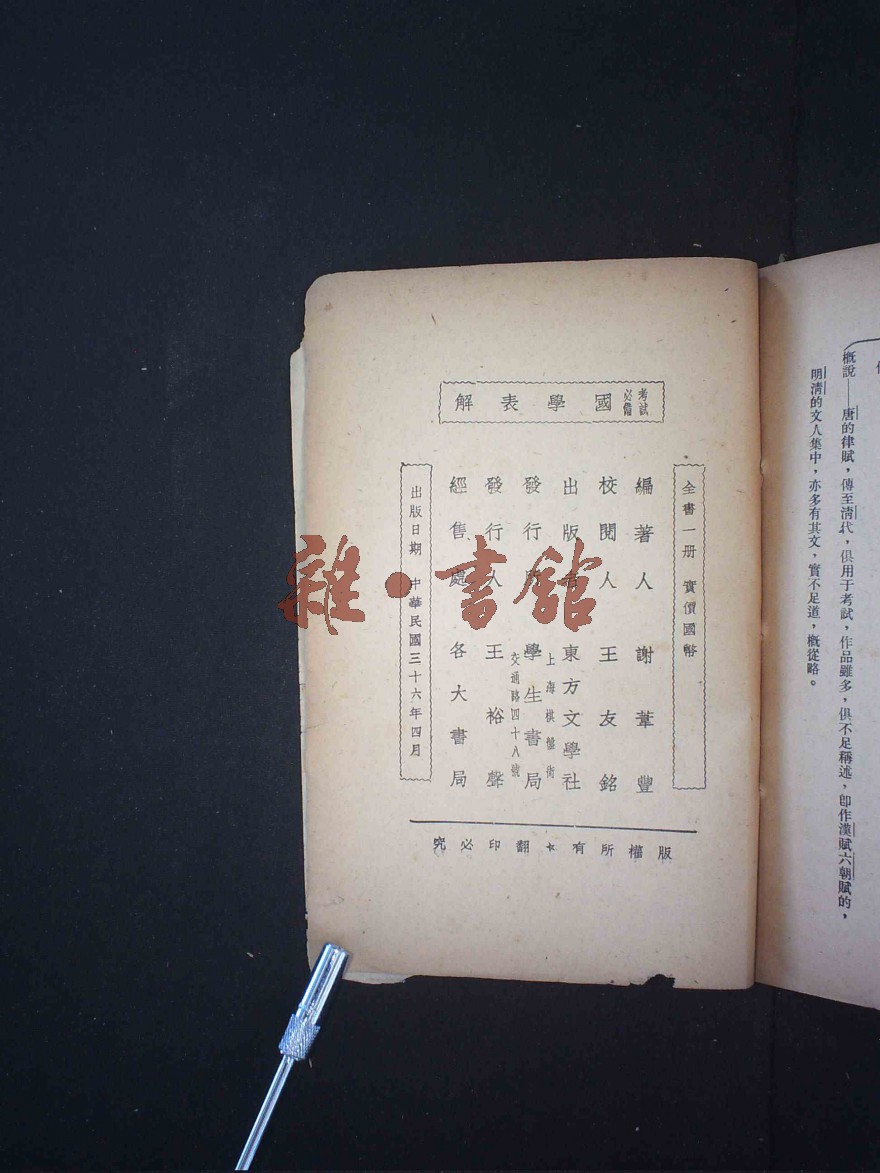 概說——唐的律賦，傳至清代，俱用于考試，作品雖多，俱不足稱述，卽作漢賦六朝賦的，
明清的文人集中，亦多有其文，實不足道，槪從略。
考試必備 國學表解
全書一册 實價國幣
編著人 謝葦豐
校閱人 王友銘
出版者 東方文學社
上海棋盤街
發行所 學生書局
交通路四十八號
發行人 王裕聲
經售處 各大書局
出版日期 中華民國三十六年四月
版權所有★翻印必究
雜·書館